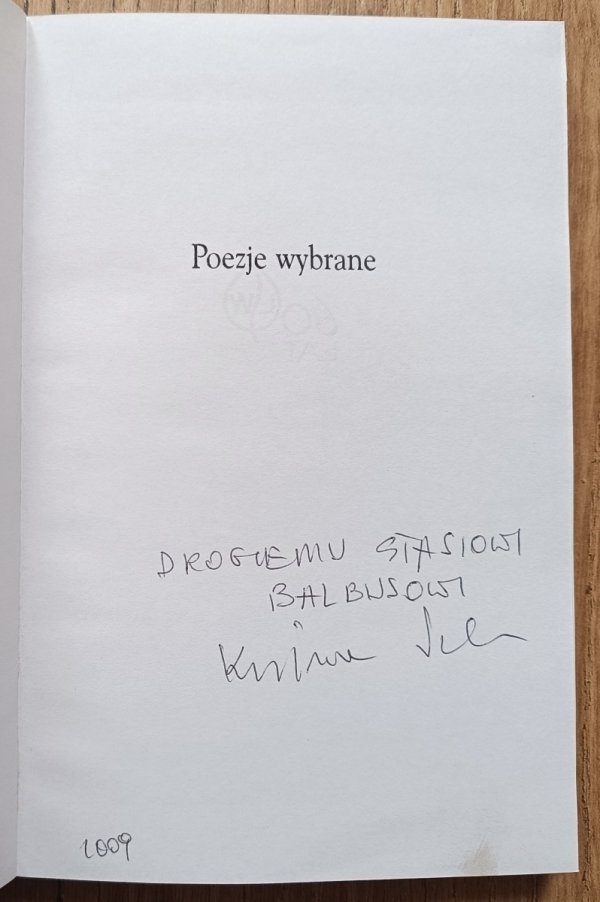 Poezje wybrane
DROGIEMU STASIOWI
BALBUSOWI
2009